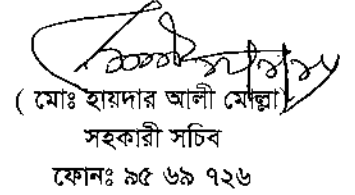 ( মোঃ হায়দার আলী মোল্লা)
সহকারী সচিব
ফোনঃ ৯৫ ৬৯ ৭২৬